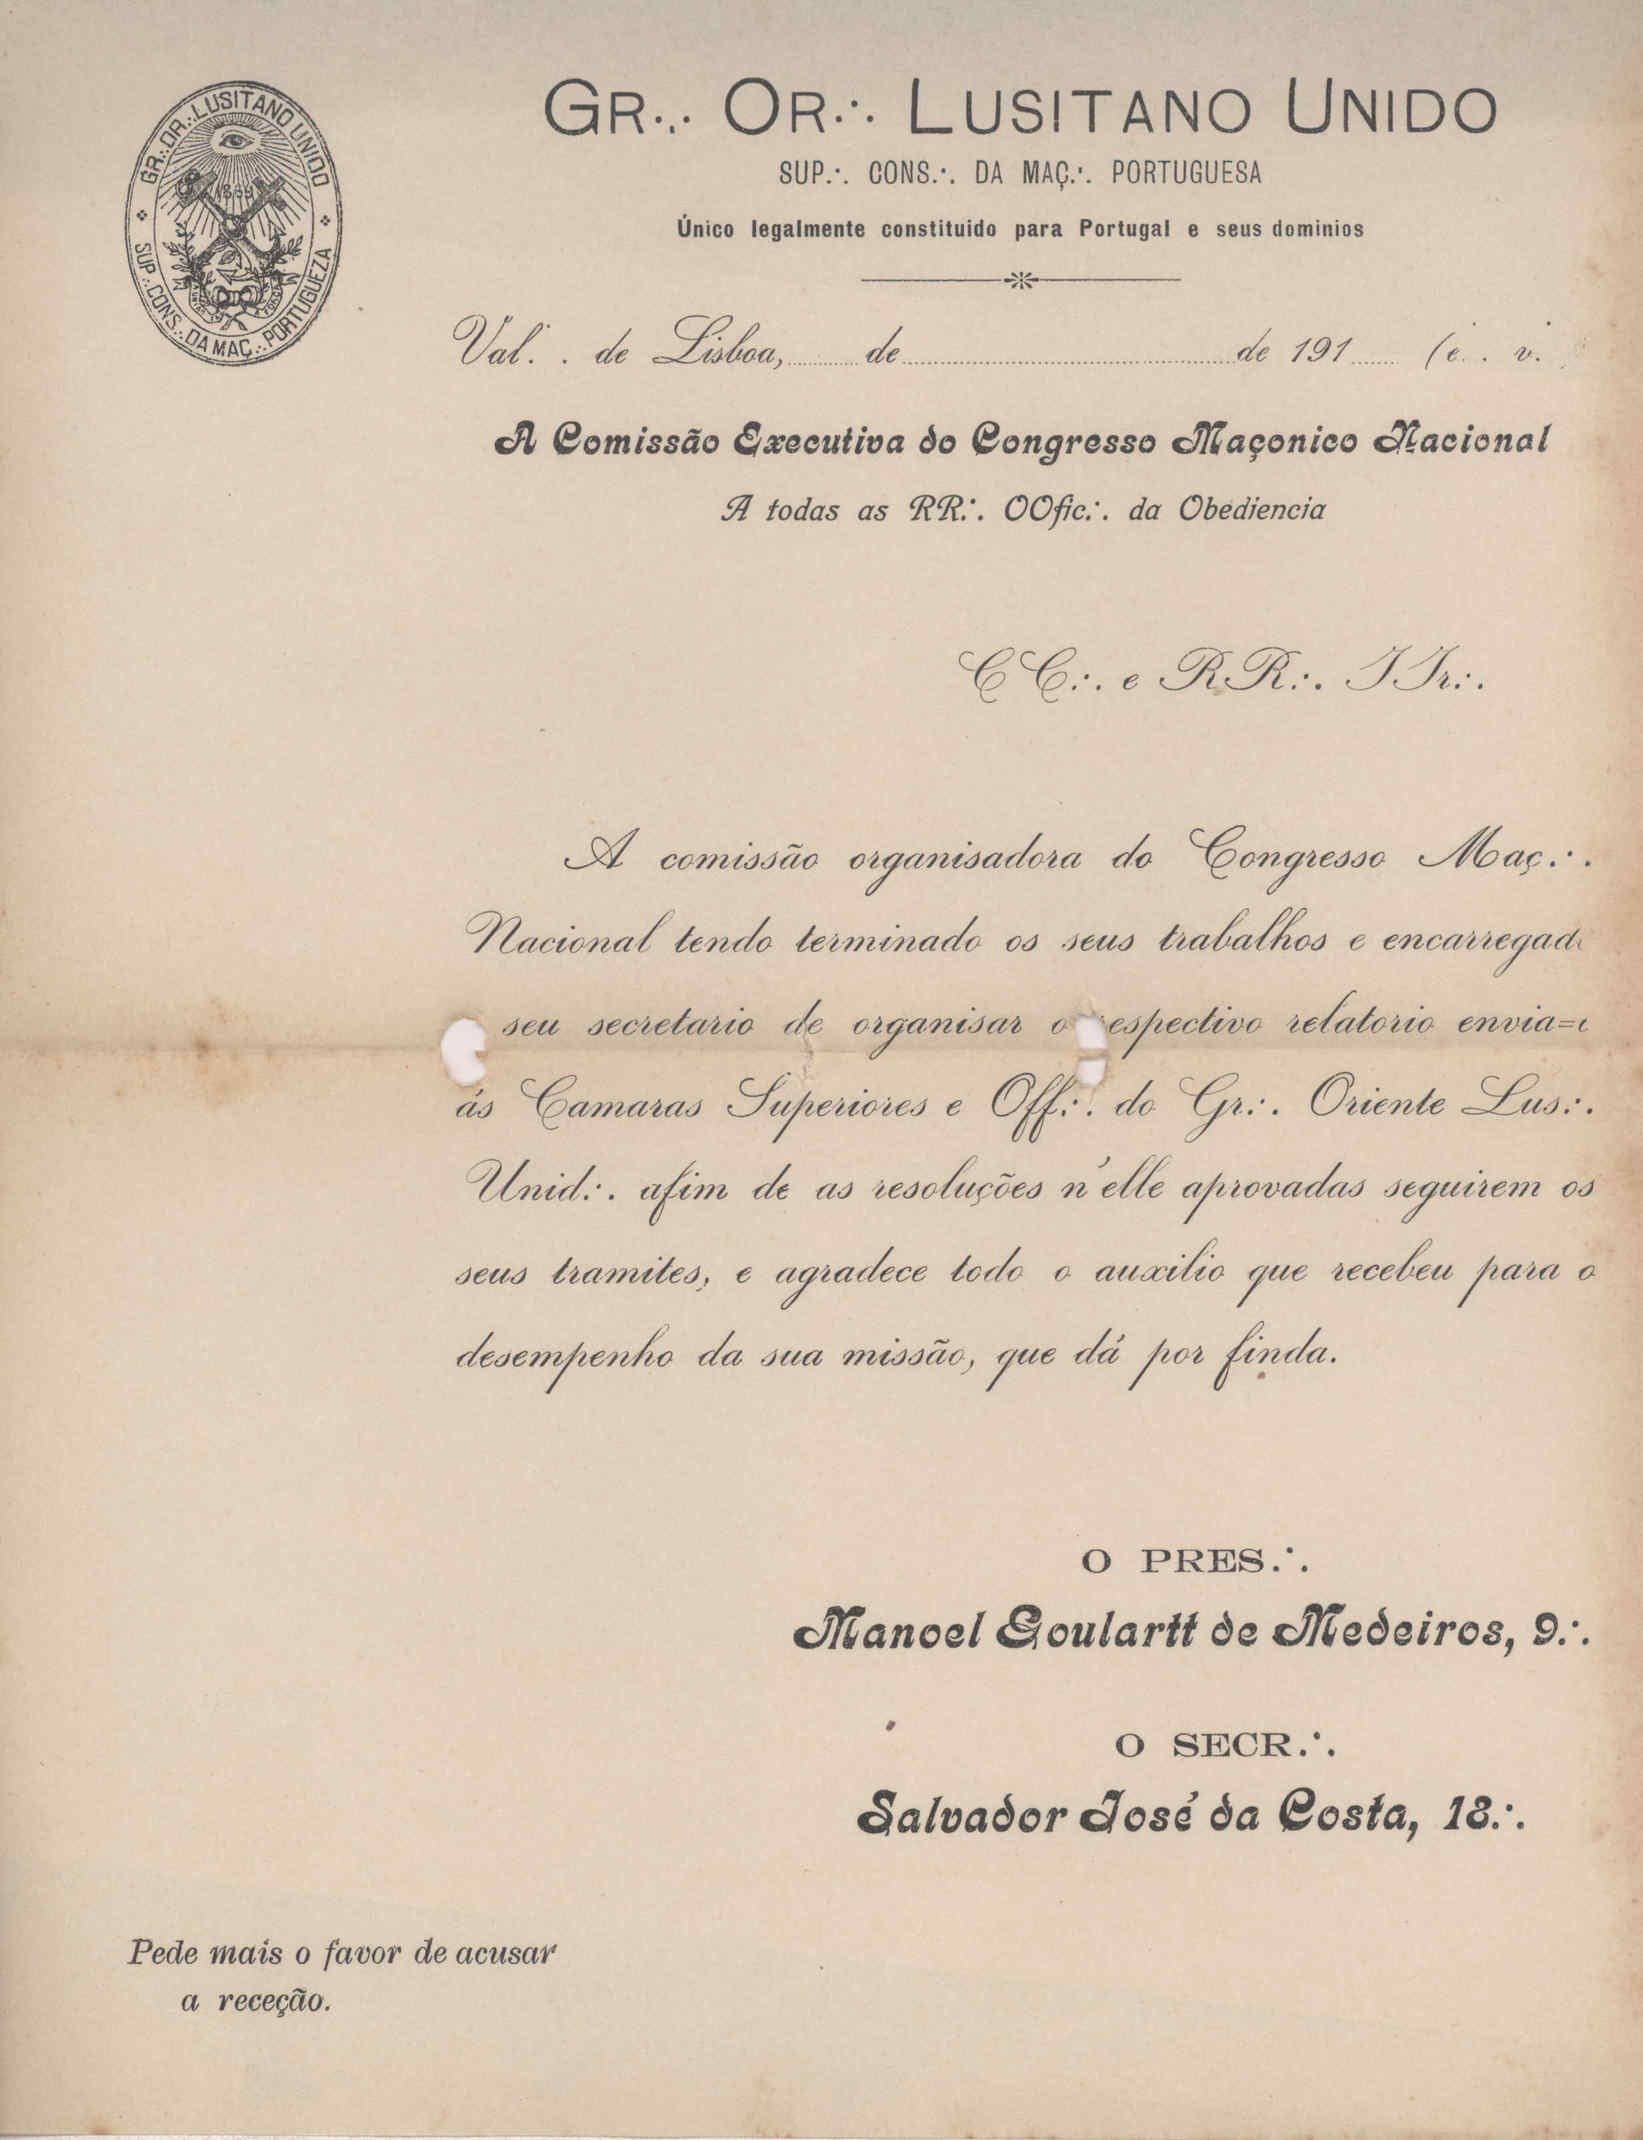 GR∴ OR∴ LUSITANO UNIDO
SUP∴ CONS∴ DA MAÇ∴ PORTUGUEZA
1869
GR∴ OR∴ LUSITANO UNIDO
SUP∴ CONS∴ DA MAÇ∴ PORTUGUESA
Único legalmente constituido para Portugal e seus dominios
Val∴ de Lisboa, de de 191 (e∴ v.
A Comissão Executiva do Congresso Maçonico Nacional
A todas as RR∴ OOfic∴ da Obediencia
CC∴ e RR∴ IIr∴
A comissão organisadora do Congresso Maç∴
Nacional tendo terminado os seus trabalhos e encarregad
seu secretario de organisar o respectivo relatorio envia=
ás Camaras Superiores e Off∴ do Gr∴ Oriente Lus∴
Unid∴ afim de as resoluções n'elle aprovadas seguirem os
seus tramites, e agradece todo o auxilio que recebeu para o
desempenho da sua missão, que dá por finda.
O PRES∴
Manoel Goulartt de Medeiros, 9∴
O SECR∴
Salvador José da Costa, 18∴
Pede mais o favor de acusar
a receção.